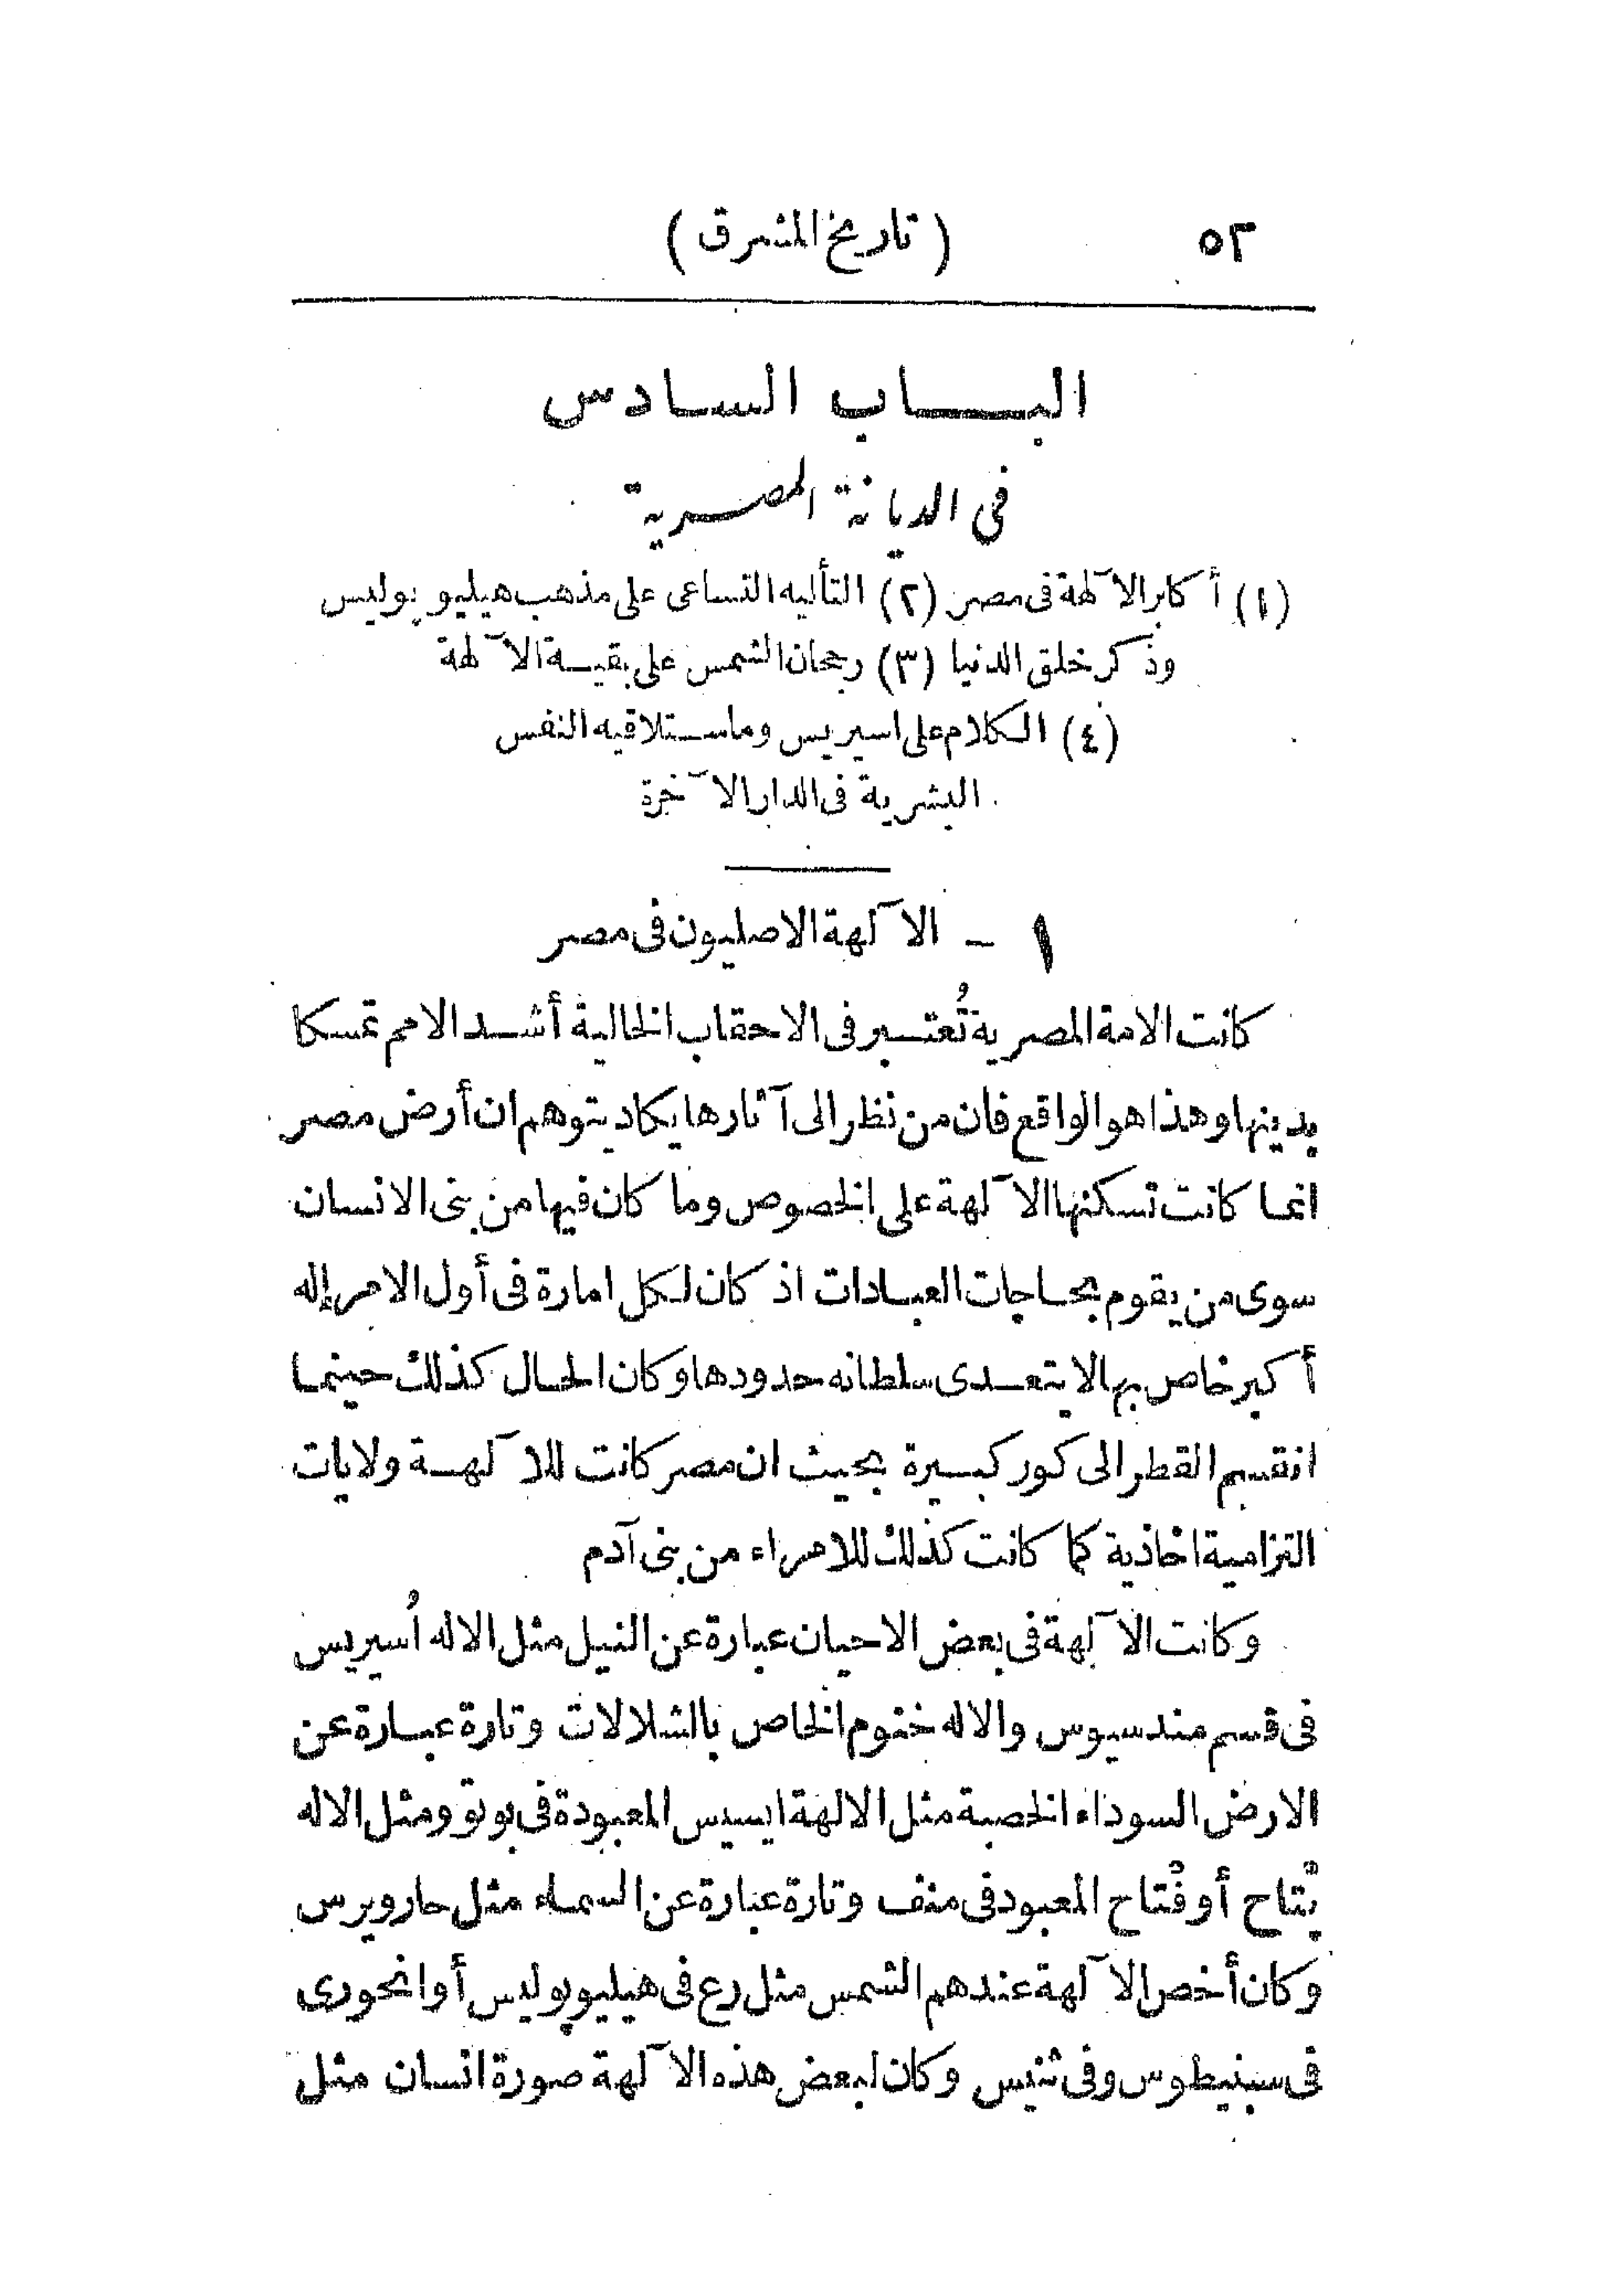 ٥٢ (تاريخ المشرق)
البـــاب السـادس
فى الديانة المصرية
(١) أكابر الآلهة فى مصر (٢) التأليه التساعى على مذهب هيليوپوليس
وذكر خلق الدنيا (٣) رجحان الشمس على بقيـة الآلهة
(٤) الكلام على اسيريس وماستلاقيه النفس
البشرية فى الدار الآخرة
١ - الآلهة الاصليون فى مصر
كانت الامة المصرية تُعتبر فى الاحقاب الخالية أشد الامم تمسكا
بدينها وهذا هو الواقع فان من نظر الى آثارها يكاد يتوهم ان أرض مصر
انما كانت تسكنها الآلهة على الخصوص وما كان فيها من بنى الانسان
سوى من يقوم بحاجات العبادات اذ كان لكل امارة فى أول الامر إله
أكبر خاص بها لا يتعدى سلطانه حدودها وكان الحال كذلك حينما
انقسم القطر الى كور كبيرة بحيث ان مصر كانت للآلهة ولايات
التزامية اخاذية كما كانت كذلك للامراء من بنى آدم
وكانت الآلهة فى بعض الاحيان عبارة عن النيل مثل الاله أُسيريس
فى قسم مندسيوس والاله خنوم الخاص بالشلالات وتارة عبارة عن
الارض السوداء الخصبة مثل الالهة ايسيس المعبودة فى بوتو ومثل الاله
پْتاح أو فْتاح المعبود فى منف وتارة عبارة عن السماء مثل حارويرس
وكان أخص الآلهة عندهم الشمس مثل رع فى هيليوپوليس أو انحورى
فى سبنيطوس وفى ثنيس وكان لبعض هذه الآلهة صورة انسان مثل